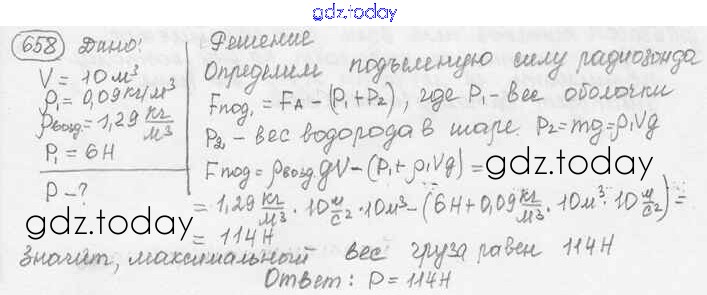 gdz.today
658 Дано:
V = 10 м³
ρ₁ = 0,09 кг/м³
ρвозд. = 1,29 кг/м³
P₁ = 6 Н
P - ?
Решение
Определим подъемную силу радиозонда
Fпод₁ = FА - (P₁ + P₂), где P₁ - вес оболочки
P₂ - вес водорода в шаре. P₂ = mg = ρ₁Vg
Fпод = ρвозд. gV - (P₁ + ρ₁Vg) =
gdz.today
= 1,29 кг/м³ · 10 м/с² · 10 м³ - (6 Н + 0,09 кг/м³ · 10 м³ · 10 м/с²) =
gdz.today
= 114 Н
Значит, максимальный вес груза равен 114 Н
Ответ: P = 114 Н
gdz.today